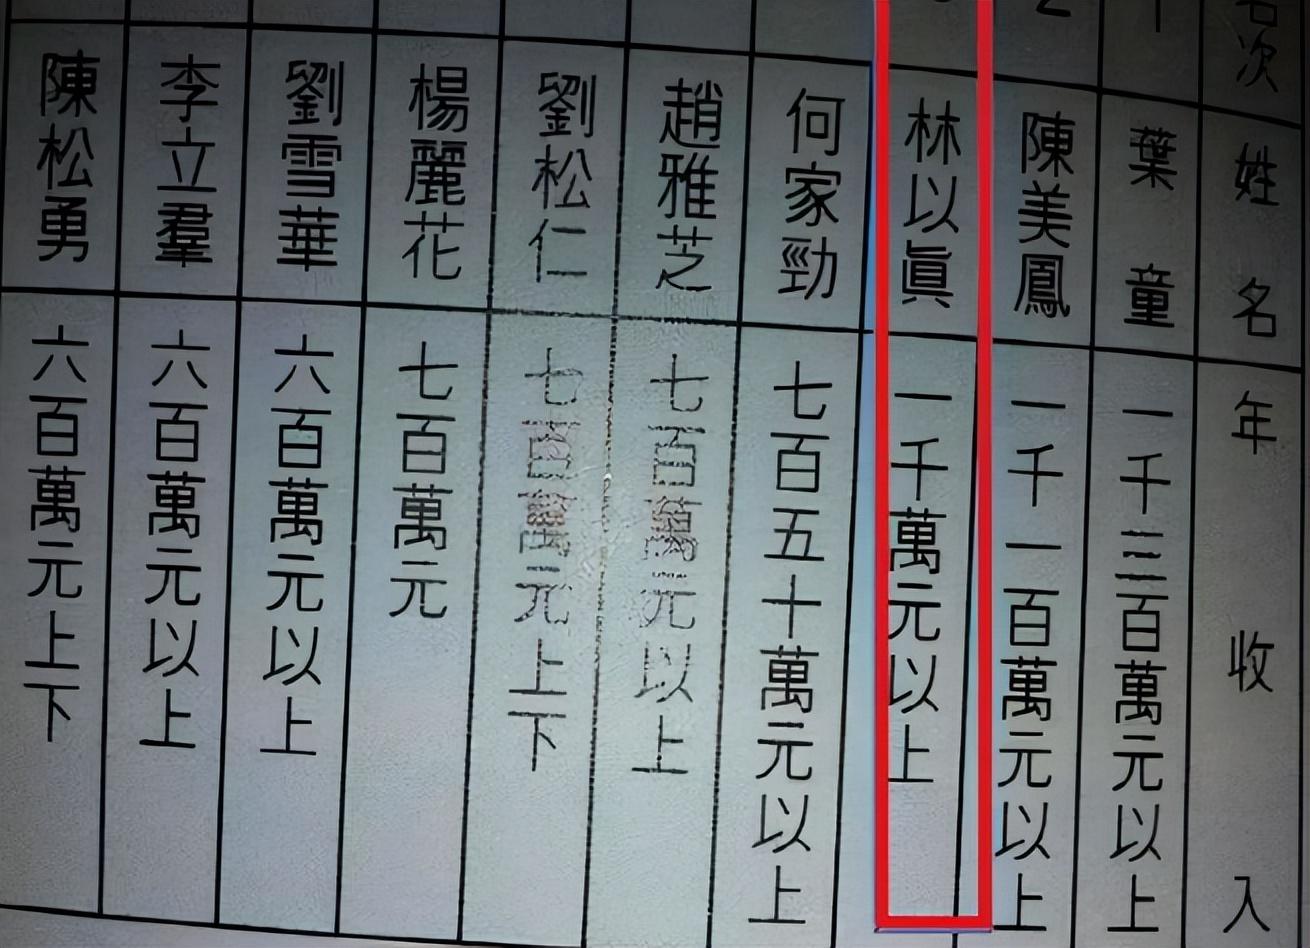 名次 姓名 年收入
1 葉童 一千三百萬元以上
2 陳美鳳 一千一百萬元以上
林以眞 一千萬元以上
何家勁 七百五十萬元以上
趙雅芝 七百萬元以上
劉松仁 七百萬元上下
楊麗花 七百萬元
劉雪華 六百萬元以上
李立羣 六百萬元以上
陳松勇 六百萬元上下